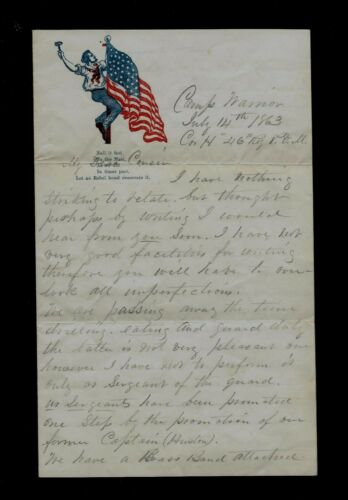 Camp Warrior
July 14th 1863
Co H 46th Reg
Nail it fast,
To the Mast,
In times past,
Let no Rebel hand desecrate it.
My Cousin
I have nothing
striking to relate. but thought
perhaps by writing I would
hear from you soon. I have not
very good facilities for writing
therefore you will have to over-
look all imperfections.
We are passing away the time
drilling. eating and guard duty
the latter is not very pleasant one
however I have not to perform it
only as Sergeant of the guard.
us Sergeants have been promoted
one step by the promotion of our
former Captain
We have a Brass Band attached